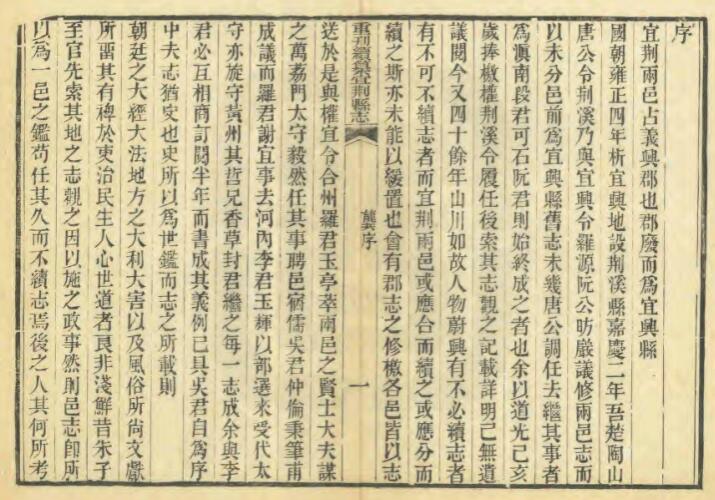 序
宜荆兩邑占義興郡也郡廢而爲宜興縣
國朝雍正四年析宜興地設荆溪縣嘉慶二年吾楚陶山
唐公令荆溪乃與宜興令羅源阮公昉嚴議修兩邑志而
以未分邑前爲宜興縣舊志未幾唐公調任去繼其事者
爲滇南段君可石阮君則始終成之者也余以道光己亥
歲捧檄權荆溪令履任後索其志觀之記載詳明已無遺
議閱今又四十餘年山川如故人物蔚興有不必續志者
有不可不續志者而宜荆兩邑或應合而續之或應分而
續之斯亦未能以緩置也會有郡志之修檄各邑皆以志
重刊續纂宜荆縣志
龔序
一
送於是與權宜令合州羅君玉亭萃兩邑之賢士大夫謀
之萬荔門太守毅然任其事聘邑宿儒吳君仲倫秉筆甫
成議而羅君謝宜事去河內李君玉輝以部選來受代太
守亦旋守黃州其哲兄香草封君繼之每一志成余與李
君必互相商訂閱半年而書成其義例已具吳君自爲序
中夫志猶史也史所以爲世鑑而志之所載則
朝廷之大經大法地方之大利大害以及風俗所尚文獻
所畱其有裨於吏治民生人心世道者良非淺鮮昔朱子
至官先索其地之志親之因以施之政事然則邑志卽所
以爲一邑之鑑苟任其久而不續志焉後之人其何所考